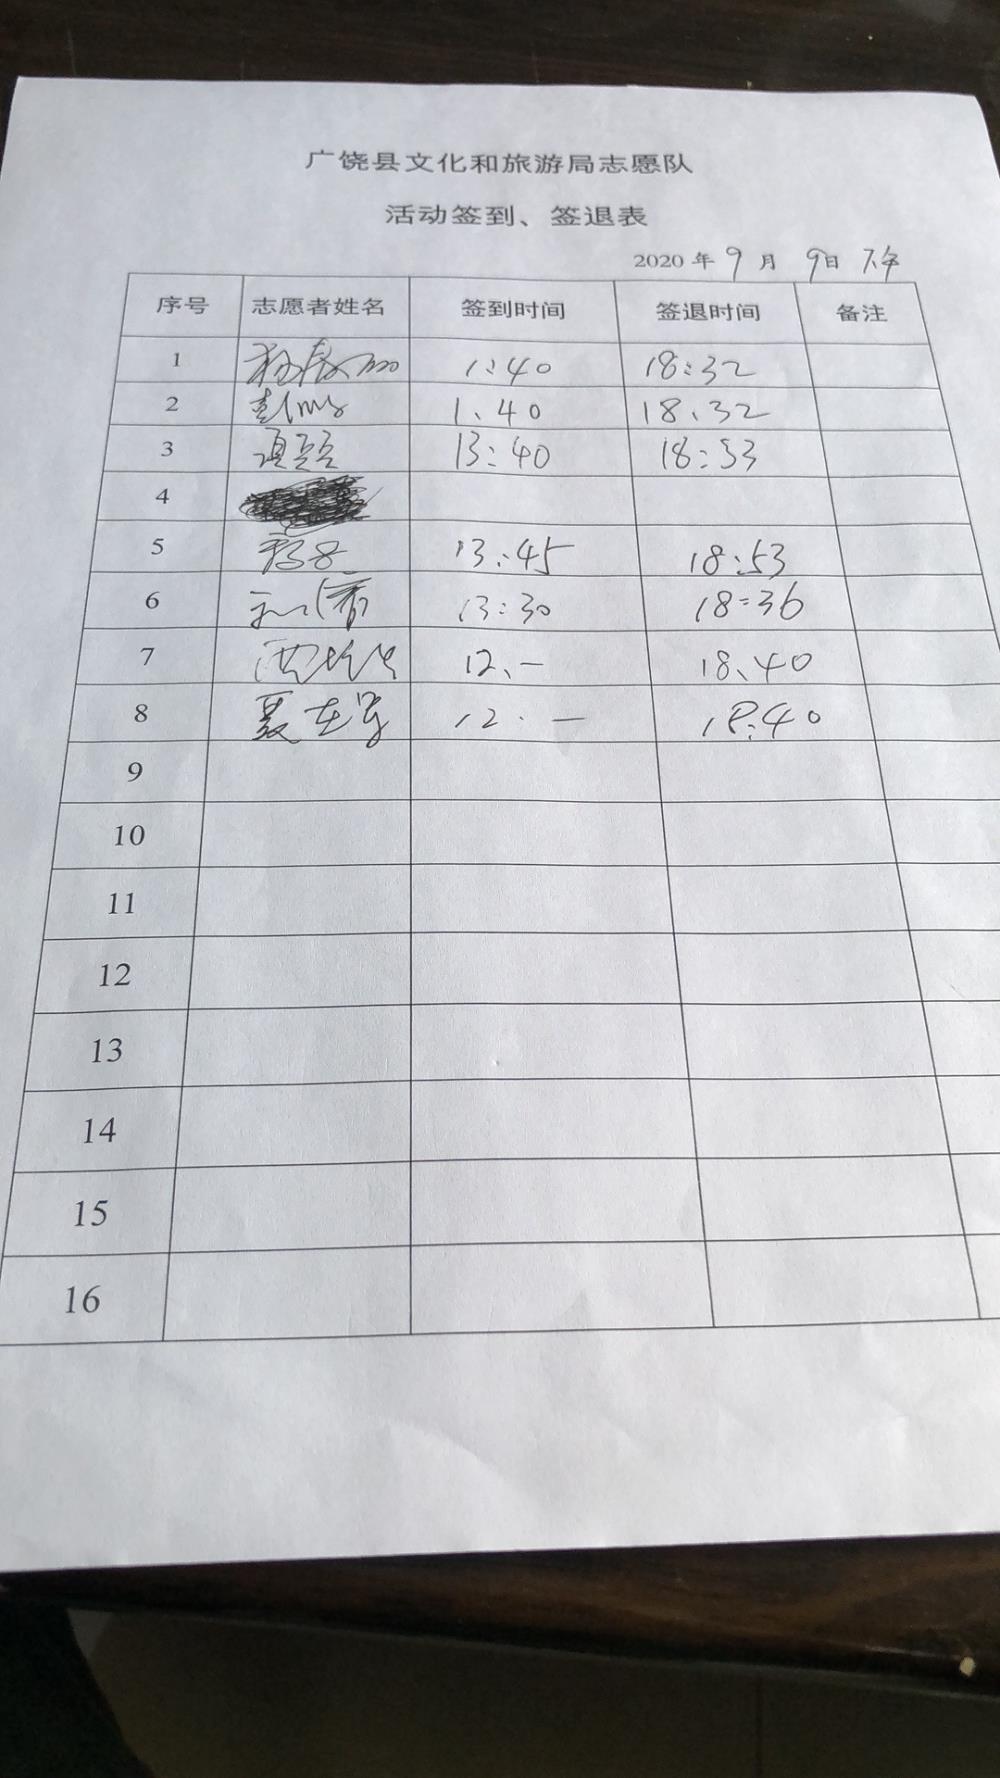 广饶县文化和旅游局志愿队
活动签到、签退表
2020 年 9 月 9日 下午
序号 志愿者姓名 签到时间 签退时间 备注
1 1:40 18:32
2 1、40 18、32
3 13:40 18:53
4
5 13:45 18:53
6 13:30 18:36
7 12、一 18、40
8 夏 12.一 18:40
9
10
11
12
13
14
15
16